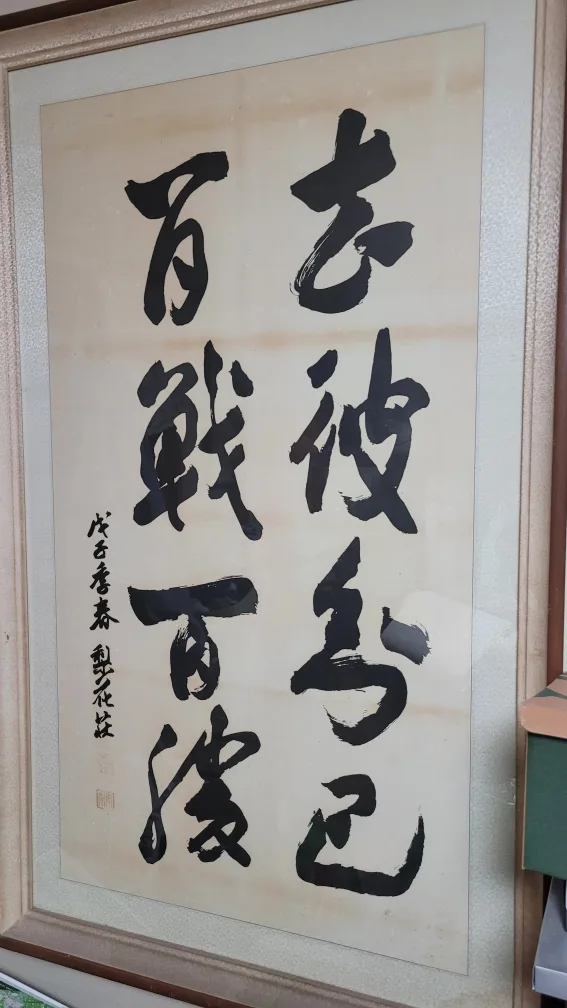 知彼知己
百戰百勝
戊子季春 梨花莊